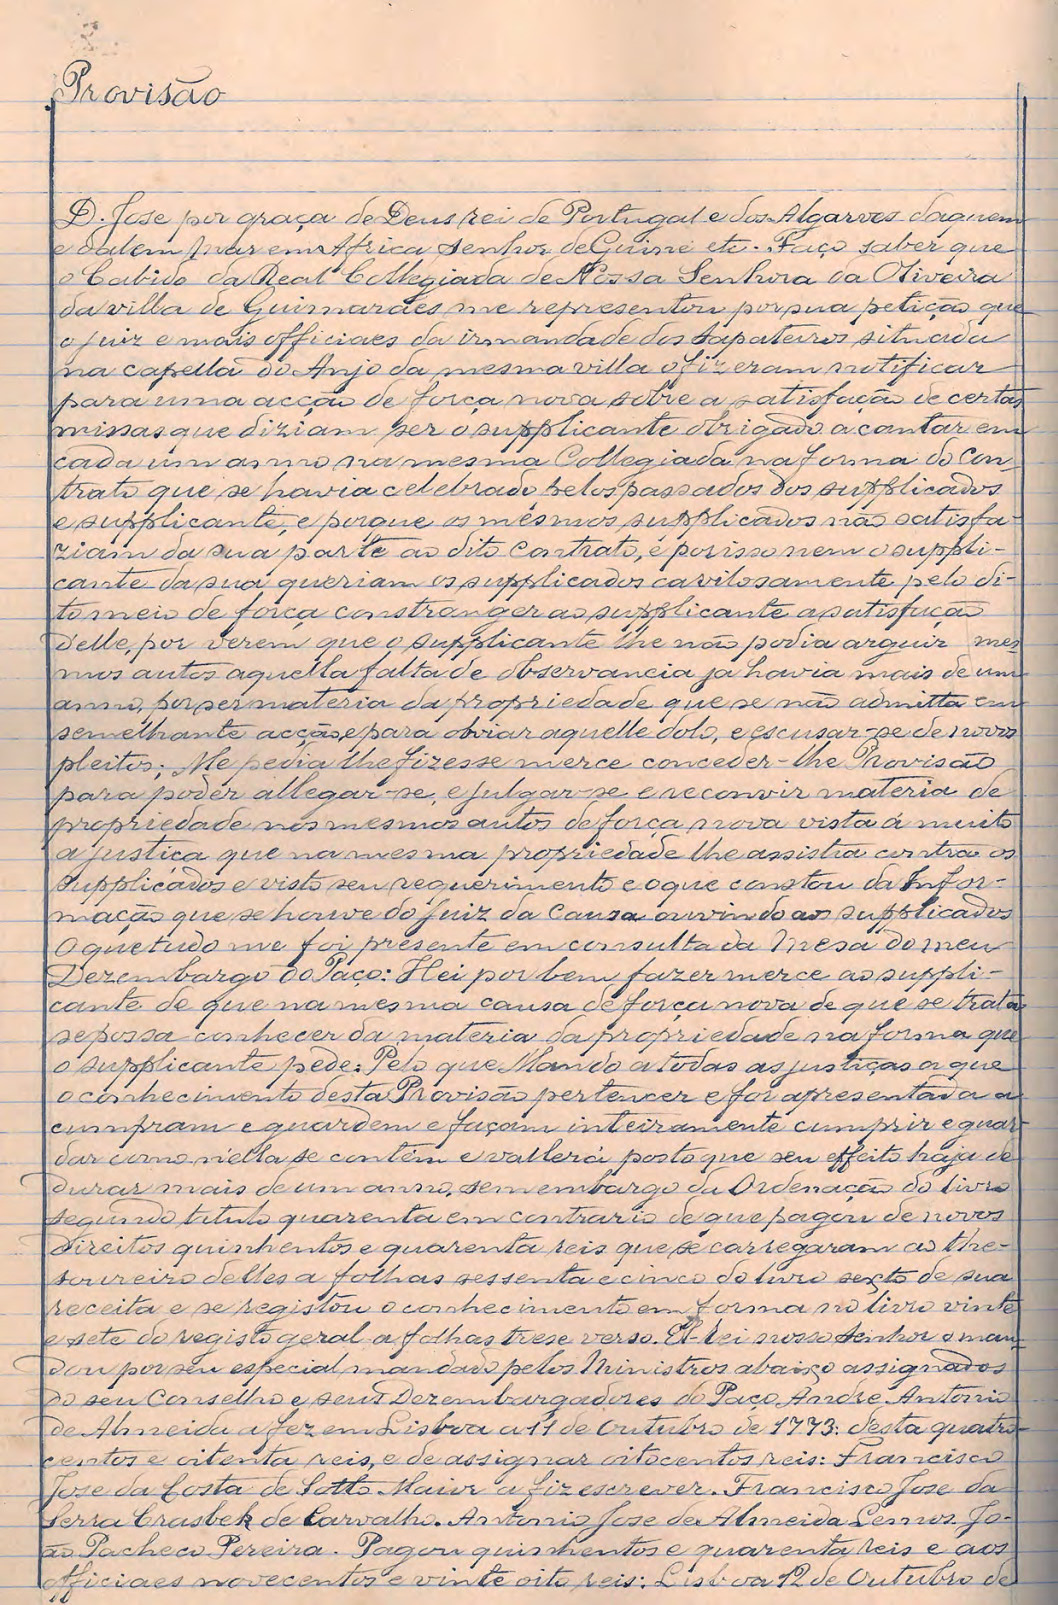 Provisão
D. Jose por graça de Deus rei de Portugal e dos Algarves daquem
e dalem Mar em Africa senhor de Guiné etc. Faço saber que
o Cabido da Real Collegiada de Nossa Senhora da Oliveira
da villa de Guimarães me representou por sua petição que
o juiz e mais officiaes da irmandade dos sapateiros situada
na capella do Anjo da mesma villa o fizeram notificar
para uma acção de força nova sobre a satisfação de certas
missas que diziam ser o supplicante obrigado a cantar em
cada um anno na mesma Collegiada na forma do Con-
trato que se havia celebrado pelos passados dos supplicados
e supplicante, e porque os mesmos supplicados não satisfa-
ziam da sua parte ao dito Contrato, e por isso nem o suppli-
cante da sua queriam os supplicados cavilosamente pelo di-
to meio de força constranger ao supplicante a satisfação
delle, por verem que o supplicante lhe não podia arguir mes-
mos autos aquella falta de observancia ja havia mais de um
anno, por ser materia da propriedade que se não admitta em
semelhante acção, e para obviar aquelle dolo, e escusar-se de novos
pleitos; Me pedia lhe fizesse merce conceder-lhe Provisão
para poder allegar-se, e julgar-se e reconvir materia de
propriedade nos mesmos autos de força nova vista á muito
a justiça que na mesma propriedade lhe assistia contra os
supplicados e visto seu requerimento e o que constou da Infor-
mação que se houve do Juiz da Causa ouvindo aos supplicados
O que tudo me foi presente em consulta da Mesa do meu
Dezembargo do Paço: Hei por bem fazer merce ao suppli-
cante de que na mesma causa de força nova de que se trata
se possa conhecer da materia da propriedade na forma que
o supplicante pede: Pelo que Mando a todas as justiças a que
o conhecimento desta Provisão pertencer e for apresentada a
cumpram e guardem e façam inteiramente cumprir e guar-
dar como n'ella se contém e vallerá posto que seu effeito haja de
durar mais de um anno, sem embargo da Ordenação do livro
segundo titulo quarenta em contrario de que pagou de novos
direitos quinhentos e quarenta reis que se carregaram ao the-
soureiro delles a folhas sessenta e cinco do livro sexto de sua
receita e se registou o conhecimento em forma no livro vinte
e sete do registo geral a folhas trese verso. El-rei nosso Senhor o man-
dou por seu especial mandado pelos Ministros abaixo assignados
do seu Conselho e seus Dezembargadores do Paço, Andre Antonio
de Almeida a fez em Lisboa a 11 de Outubro de 1773: desta quatro-
centos e oitenta reis, e de assignar oitocentos reis: Francisco
Jose da Costa de Sotto Maior a fiz escrever. Francisco Jose da
Serra Crasbek de Carvalho. Antonio Jose de Almeida Lemos. Jo-
ão Pacheco Pereira. Pagou quinhentos e quarenta reis e aos
officiaes novecentos e vinte oito reis: Lisboa 12 de Outubro de